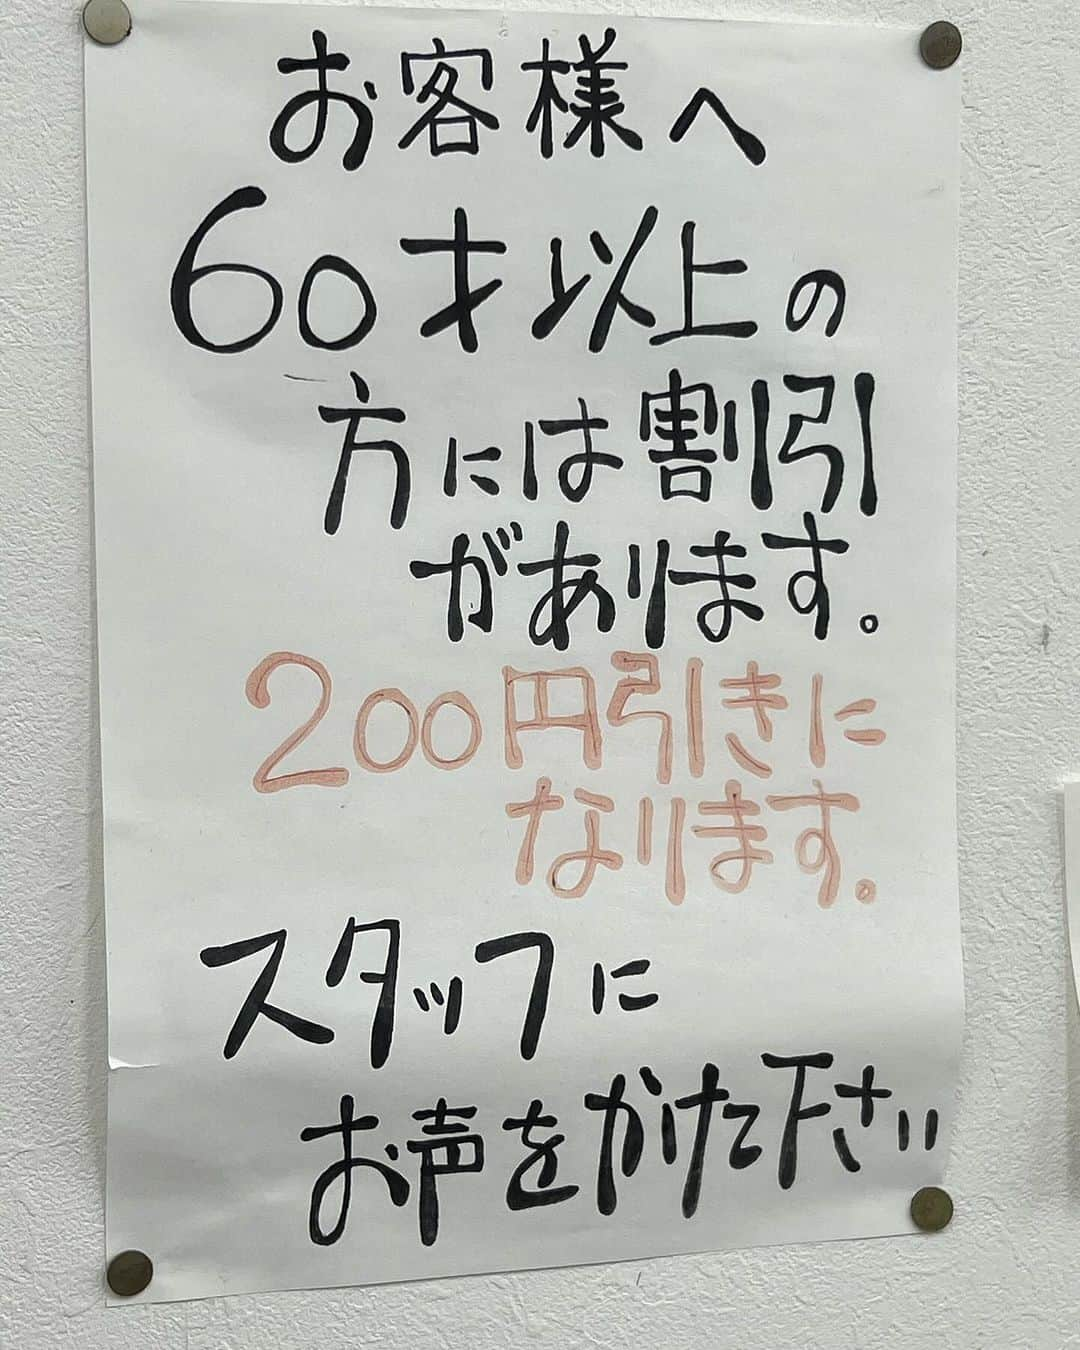 お客様へ
60才以上の
方には割引
があります。
200円引きに
なります。
スタッフに
お声をかけて下さい